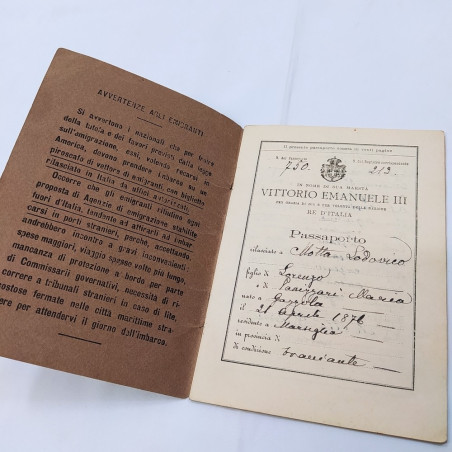 AVVERTENZE AGLI EMIGRANTI
Si avvertono i nazionali che per fruire
della tutela e dei favori previsti dalla legge
sull'emigrazione, essi volendo recarsi in
America, devono prendere imbarco su un
piroscafo di vettore di emigranti con biglietto
rilasciato in Italia da uffici autorizzati.
Occorre che gli emigranti rifiutino ogni
proposta di Agenzie di emigrazione stabilite
fuori d'Italia, tendente ad affidarli ad imbar-
carsi in porti stranieri, perchè, accettando,
andrebbero incontro a gravi inconvenienti:
spese maggiori, viaggio spesso volte più lungo,
mancanza di protezione a bordo per parte
di Commissarii governativi, necessità di ri-
correre a tribunali stranieri in caso di lite,
costose fermate nelle città marittime stra-
ere per attendervi il giorno dell'imbarco.
Il presente passaporto consta di venti pagine
N. del Passaporto
N. del Registro corrispondente
750
213
IN NOME DI SUA MAESTÀ
VITTORIO EMANUELE III
PER GRAZIA DI DIO E PER VOLONTÀ DELLA NAZIONE
RE D'ITALIA
Passaporto
rilasciato a Motta Lodovico
figlio di Lorenzo
e di Panizzari Maria
nato a Gazzola
il 21 Aprile 1876
residente a Marsiglia
in provincia di
di condizione bracciante